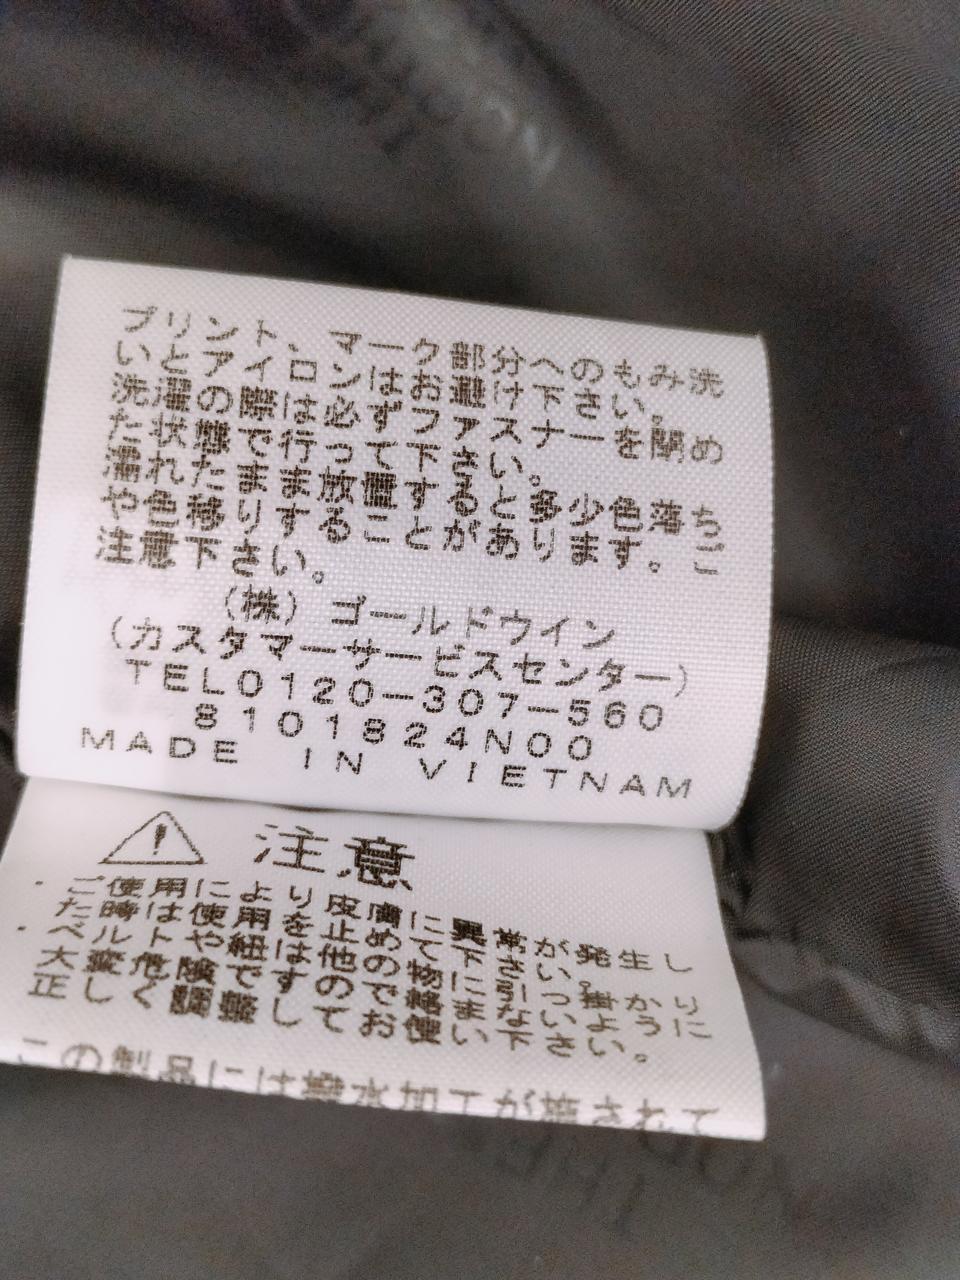 プリント、マーク部分へのもみ洗
いとアイロンはお避け下さい。
洗濯の際は必ずファスナーを閉め
た状態で行って下さい。
濡れたまま放置すると多少色落ち
や色移りすることがあります。ご
注意下さい。
(株)ゴールドウイン
(カスタマーサービスセンター)
TEL0120-307-560
8101824N00
MADE IN VIETNAM
注意
・ご使用により皮膚に異常が発生し
た時は使用を止めて下さい。
・ベルトや紐は他の物に引っ掛かり
大変危険ですので絡まないように
正しく調整してお使い下さい。
この製品には撥水加工が施されて